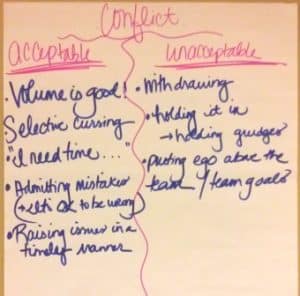 Conflict
acceptable
• Volume is good!
Selective cursing
"I need time..."
• Admitting mistakes
(→ it's OK to be wrong)
• Raising issues in a
timely manner
unacceptable
• Withdrawing
• holding it in
→ holding grudges
• putting ego above the
team / team goals